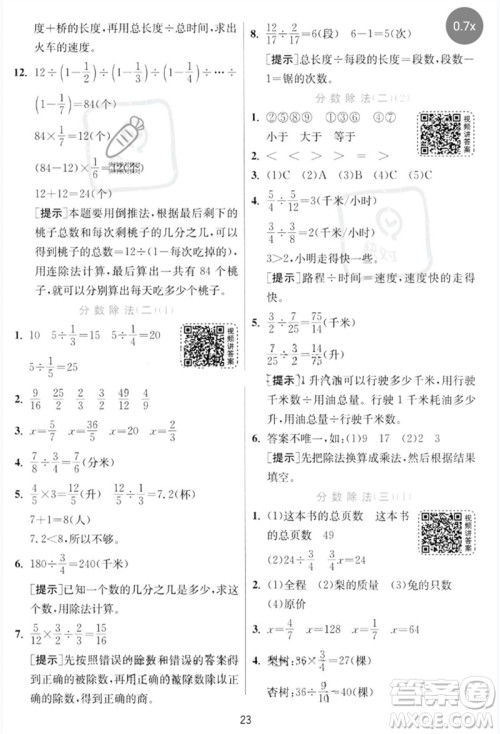 0.7x
度＋桥的长度)，用总长度÷速度求出
火车的速度。
12. 12÷(1-1/2)÷(1-1/3)÷(1-1/4)÷…÷
(1-1/7)=84(个)
84×1/7=12(个)
(84-12)×1/6=12(个)
12+12=24(个)
[提示]本题要用倒推法，根据最后剩下的
桃子总数和每次摘的几分之几，求出树上
原有桃子的总数=12÷(1-每次吃掉的)。
用连除法计算，最后得出共有 84 个桃
子，再计算出每天吃多少个桃子。
分数除法(二)(1)
1. 10 5÷1/3=15 5÷1/4=20
5÷1/5=25
视频讲答案
2. 9/16 25/2 2/3 32
3. x=2/5 x=36/5 x=50/7
4. 7/8÷3/4=7/6(分米)
5. 4/5×3=12/5(升) 12/5÷1/3=7.2(杯)
7+1=8(人)
7.2<8，所以不够。
6. 180÷3/4=240(千米)
[提示]已知一个数的几分之几是多少，求
这个数，用除法计算。
7. 5/12×3/2÷2/3=15/16
[提示]先按照错误的除数和错误的答案
得到正确的被除数，再用正确的被除数除
以正确的除数，得到正确的商。
8. 12/17÷2/17=6(段) 6-1=5(次)
[提示]总长度÷每段的长度=段数，段数-
1=锯的次数。
分数除法(二)(2)
1. ②⑤⑨ ①③⑥ ④
小于 大于 等于
视频讲答案
2. < > > >
3. (1)C (2)A (3)B
4. 5/4÷5/12=3(千米/小时)
3>2，杨明走得快一些。
[提示]路程÷时间=速度，速度快的走得
快一些。
5. 3/2÷7/25=75/14(千米)
7/25÷3/2=14/75(升)
[提示]1 升汽油可以行驶多少千米，用
总千米数÷总油量；行驶 1 千米用多少升
汽油，用总油量÷总千米数。
6. 答案不唯一，如:(1)9 17 (2)2 3
[提示]先把除法换算成乘法，再根据题意
判断。
分数除法(三)(1)
1. (1)这本书的总页数 这本书
的总页数 49
(2)24÷3/4 3/4x=24
视频讲答案
2. (1)全程 (2)梨的质量 (3)兔的只数
(4)原价
3. x=4/7 x=128 x=4/7 x=64
4. 梨树:36×3/4=27(棵)
杏树:36÷9/10=40(棵)
23
答案圈
MXQE.COM